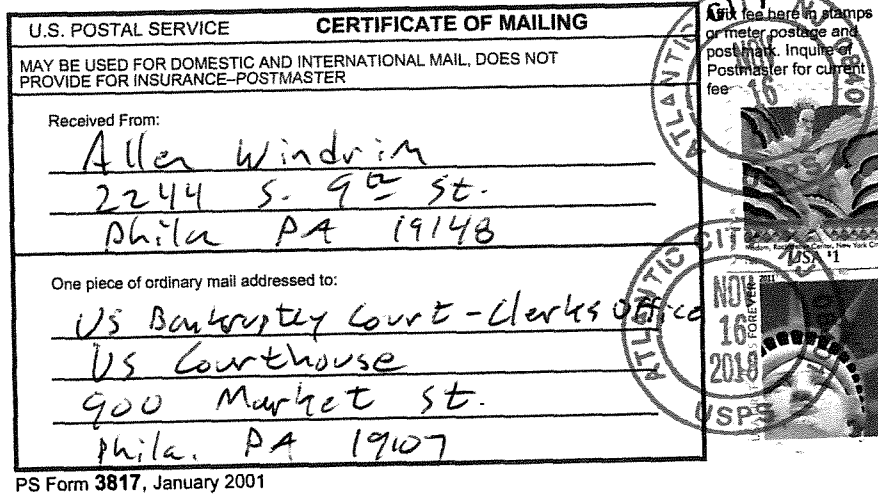 U.S. POSTAL SERVICE CERTIFICATE OF MAILING
MAY BE USED FOR DOMESTIC AND INTERNATIONAL MAIL, DOES NOT
PROVIDE FOR INSURANCE–POSTMASTER
Received From:
Allen Windrim
2244 S. 9th St.
Phila PA 19148
One piece of ordinary mail addressed to:
US Bankruptcy Court - Clerks Office
US Courthouse
900 Market St.
Phila. PA 19107
PS Form 3817, January 2001
Affix fee here in stamps
or meter postage and
post mark. Inquire of
Postmaster for current
fee
ATLANTIC CITY
NOV
16
USPS
Wisdom, Rockefeller Center, New York City
USA $1
ATLANTIC CITY NJ
NOV
16
2018
USPS
2011
FOREVER